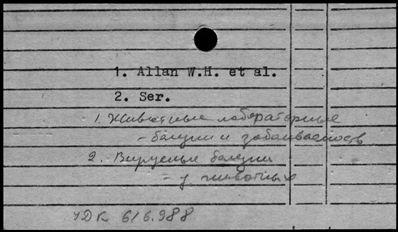 1. Allan W.H. et al.
2. Ser.
1. Животные лабораторные
- болезни и заболеваемость
2. Вирусные болезни
- у животных
УДК 616.988